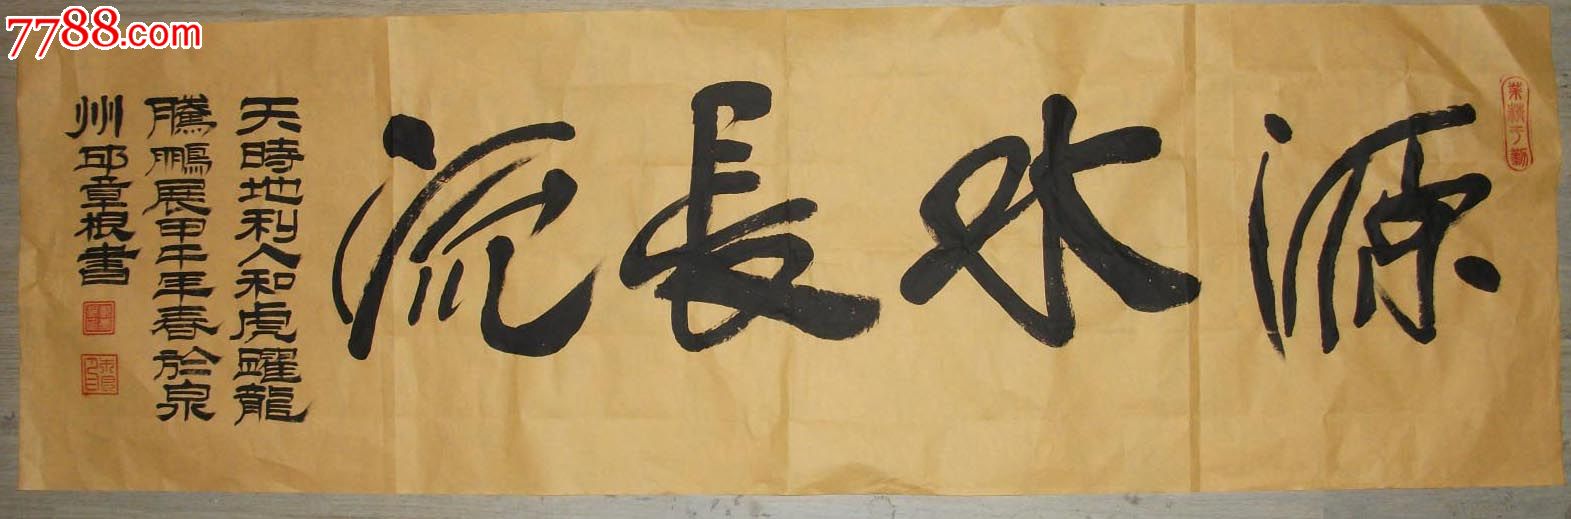 7788.com
業精于勤
源水長流
天時地利人和虎躍龍
騰鵬展甲午年春於泉
州邱章根書